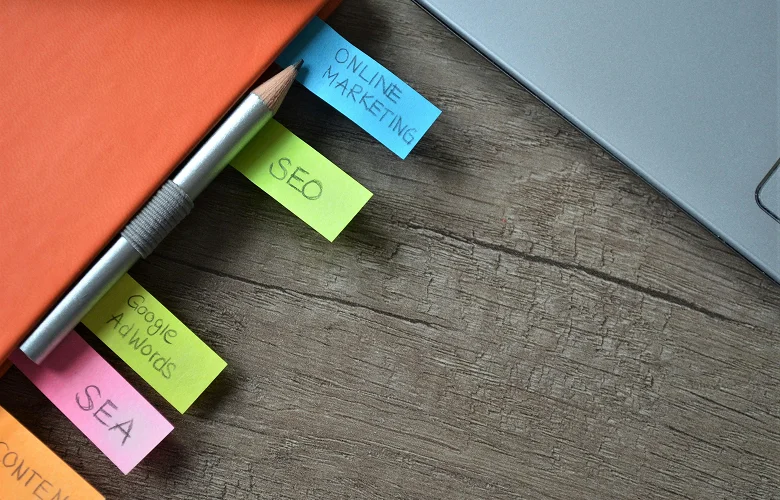 ONLINE
MARKETING
SEO
Google
AdWords
SEA
CONTEN